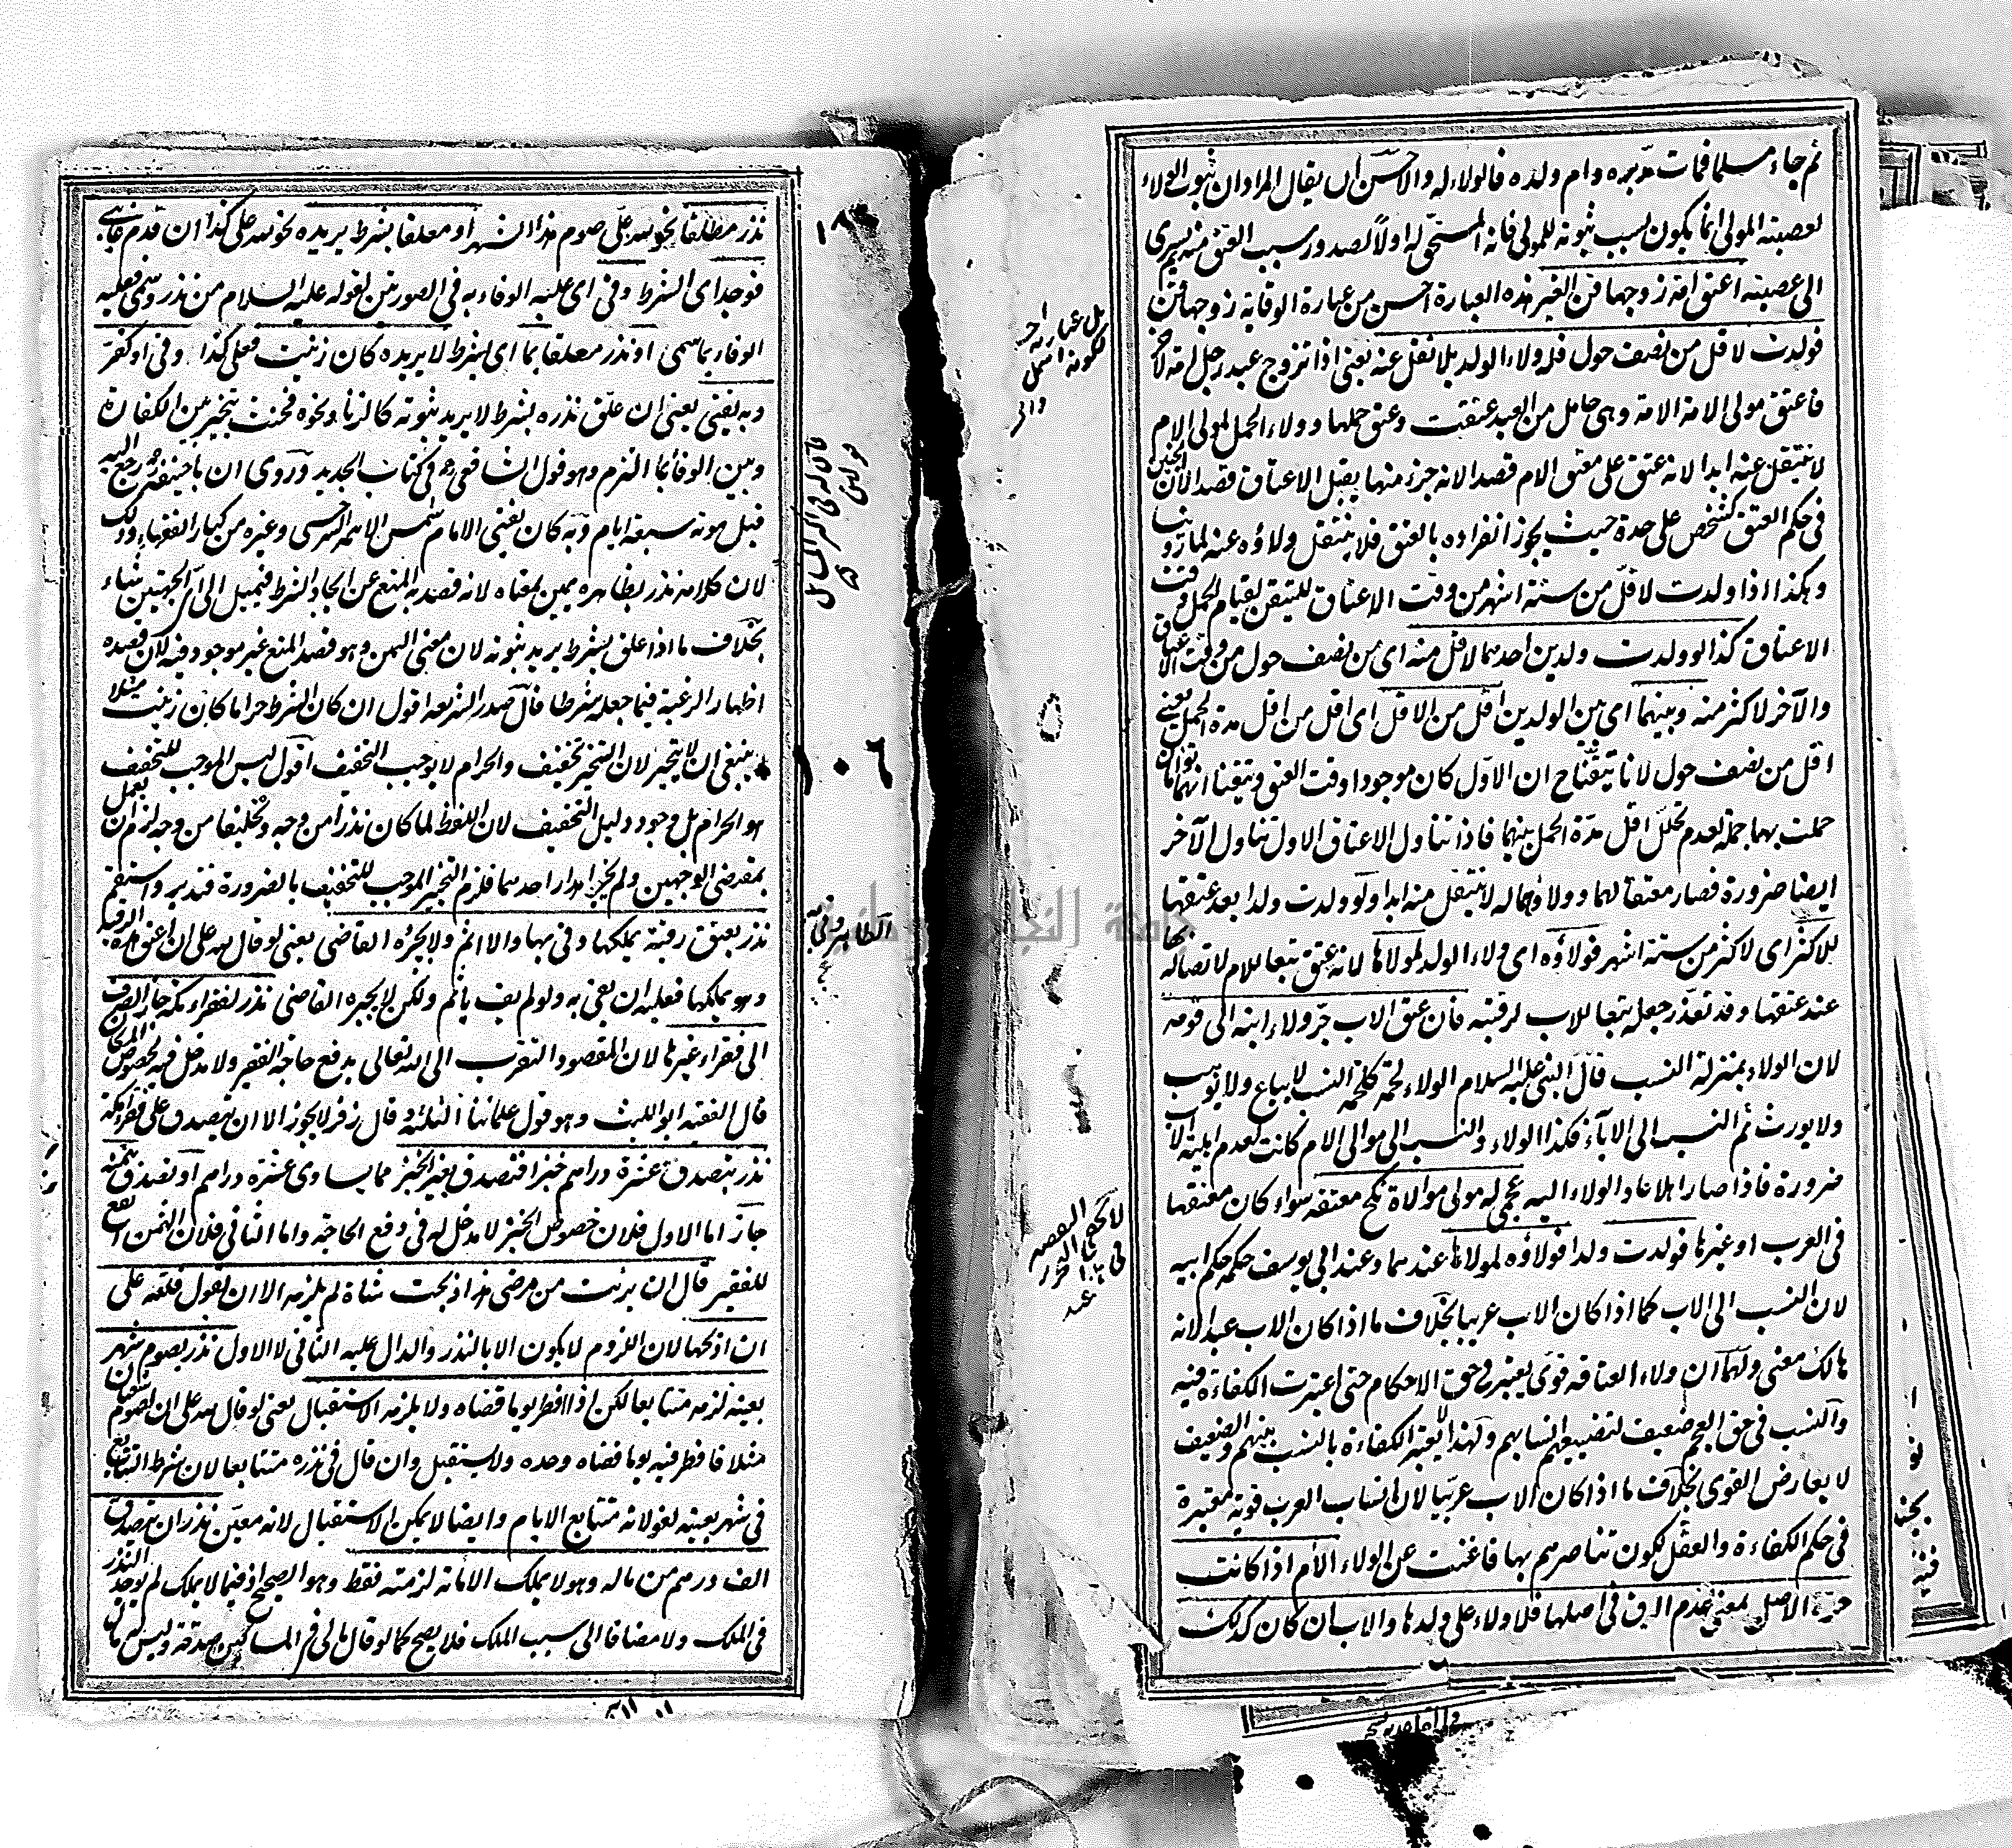 ثم جاء مسلما فمات مدبره وام ولده فالولاء له والاحسن ان يقال المراد ان ثبوت الولاء
لعصبته المولى انما يكون بسبب ثبوته للمولى فانه المستحق له اولا لصدور سبب العتق منه يسرى
الى عصبته اعتق امة زوجها قن الغير هذه العبارة احسن من عبارة الوقاية زوجها قن
فولدت لاقل من نصف حول فله ولاء الولد بلا نقل عنه يعنى اذا تزوج عبد رجل امة لاخر
فاعتق مولى الامة الامة وهى حامل من العبد عتقت وعتق حملها وولاء الحمل لمولى الام
لا ينتقل عنه ابدا لانه عتق على معتق الام قصدا لانه جزء منها يقبل الاعتاق قصدا لان الجنين
فى حكم العتق كشخص على حدة حيث يجوز انفراده بالعتق فلا ينتقل ولاؤه عنه لما روينا
وهكذا اذا ولدت لاقل من ستة اشهر من وقت الاعتاق للتيقن لقيام الحمل وقت
الاعتاق كذا لو ولدت ولدين احدهما لاقل منه اى من نصف حول من وقت الاعتاق
والآخر لاكثر منه وبينهما اى بين الولدين اقل من الاقل اى اقل من اقل مدة الحمل يعنى
اقل من نصف حول لانا تيقنا ح ان الاول كان موجودا وقت العتق وتيقنا انهما توأمان
حملت بهما جملة لعدم تخلل اقل مدة الحمل بينهما فاذا تناول الاعتاق الاول تناول الآخر
ايضا ضرورة فصار معتقا لهما وولاؤهما له لا ينتقل منه ابدا ولو ولدت ولدا بعد عتقها
للاكثر اى لاكثر من ستة اشهر فولاؤه اى ولاء الولد لمولاها لانه عتق تبعا للام لاتصاله بها
عند عتقها وقد تعذر جعله تبعا للاب لرقيته فان عتق الاب جر ولاء ابنه الى قومه
لان الولاء بمنزلة النسب قال النبى عليه السلام الولاء لحمة كلحمة النسب لا يباع ولا يوهب
ولا يورث ثم النسب الى الآباء فكذا الولاء والنسب الى موالى الام كانت لعدم اهلية الاب
ضرورة فاذا صار اهلا عاد الولاء اليه عجمى له مولى موالاة نكح معتقة سواء كان معتقها
فى العرب او غيرها فولدت ولدا فولاؤه لمولاها عندهما وعند ابى يوسف حكمه حكم ابيه
لان النسب الى الاب كما اذا كان الاب عربيا بخلاف ما اذا كان الاب عبدا لانه
هالك معنى ولهما ان ولاء العتاقة قوى يعتبر فى حق الاحكام حتى اعتبرت الكفاءة فيه
والنسب فى حق العجم ضعيف لتضييعهم انسابهم ولهذا لا يعتبر الكفاءة بالنسب بينهم والضعيف
لا يعارض القوى بخلاف ما اذا كان الاب عربيا لان انساب العرب قوية معتبرة
فى حكم الكفاءة والعقل لكون تناصرهم بها فاغنت عن الولاء الام اذا كانت
حرة الاصل بمعنى عدم الرق فى اصلها فلا ولاء على ولدها والاب ان كان كذلك
نذر مطلقا نحو لله على صوم هذا الشهر او معلقا بشرط يريده نحو لله على كذا ان قدم غايبى
فوجد اى الشرط وفى اى عليه الوفاء به فى الصورتين لقوله عليه السلام من نذر وسمى فعليه
الوفاء بما سمى او نذر معلقا بما اى بشرط لا يريده كان زنيت فعلى كذا وفى او كفر
وبه يفتى يعنى ان علق نذره بشرط لا يريد ثبوته كالزنا ونحوه فحنث يتخير بين الكفارة
وبين الوفاء بما التزم وهو قول الشافعى رح فى كتاب الجديد وروى ان ابا حنيفة رح رجع اليه
قبل موته سبعة ايام وبه كان يفتى الامام شمس الائمة السرخسى وغيره من كبار الفقهاء وذلك
لان كلامه نذر بظاهره يمين بمعناه لانه قصد به المنع عن ايجاد الشرط فيميل الى اى الجهتين شاء
بخلاف ما اذا علق بشرط يريد ثبوته لان معنى اليمين وهو قصد المنع غير موجود فيه لان قصده
اظهار الرغبة فيما جعله شرطا قال صدر الشريعة اقول ان كان الشرط حراما كان زنيت مثلا
ينبغى ان لا يتخير لان التخيير تخفيف والحرام لا يوجب التخفيف اقول ليس الموجب للتخفيف
هو الحرام بل وجود دليل التخفيف لان اللفظ لما كان نذرا من وجه وتخليفا من وجه لزم ان يعمل
بمقتضى الوجهين ولم يجز اهدار احدهما فلزم التخيير الموجب للتخفيف بالضرورة فتدبر واستقم
نذر بعتق رقبة يملكها وفى بها والا اثم ولا يجبره القاضى يعنى لو قال لله على ان اعتق هذه الرقبة
وهو يملكها فعليه ان يفى به ولو لم يف يأثم ولكن لا يجبره القاضى نذر لفقراء مكة جاز الصرف
الى فقراء غيرها لان المقصود التقرب الى الله تعالى بدفع حاجة الفقير ولا مدخل فيه لخصوص المكان
قال الفقيه ابو الليث وهو قول علمائنا الثلاثة وقال زفر لا يجوز الا ان يتصدق على فقراء مكة
نذر بتصدق عشرة دراهم خبزا فتصدق بغير الخبز مما يساوى عشرة دراهم او تصدق بثمنه
جاز اما الاول فلان خصوص الخبز لا مدخل له فى دفع الحاجة واما الثانى فلان الثمن انفع
للفقير قال ان برئت من مرضى هذا ذبحت شاة لم يلزمه الا ان يقول فلله على
ان اذبحها لان اللزوم لا يكون الا بالنذر والدال عليه الثانى لا الاول نذر بصوم شهر
بعينه لزمه متتابعا لكن اذا افطر يوما قضاه ولا يلزمه الاستقبال يعنى لو قال لله على ان اصوم شعبان
مثلا فافطر فيه يوما قضاه وحده ولا يستقبل وان قال فى نذره متتابعا لان شرط التتابع
فى شهر بعينه لغو لانه متتابع الايام وايضا لا يمكن الاستقبال لانه معين نذر ان يتصدق
الف درهم من ماله وهو لا يملك الا مائة لزمته فقط وهو الصحيح اذ فيما لا يملك لم يوجد النذر
فى الملك ولا مضافا الى سبب الملك فلا يصح كما لو قال مالى فى المساكين صدقة وليس له مال
١٠٦